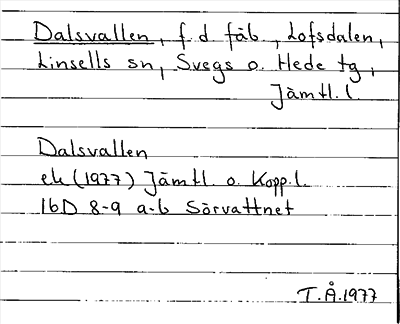 Dalsvallen, f.d fäb., Lofsdalen,
Linsells sn, Svegs o. Hede tg,
Jämtl. l.
Dalsvallen
ek (1977) Jämtl. o. Kopp. l.
16D 8-9 a-b Sörvattnet
T.Å.1977